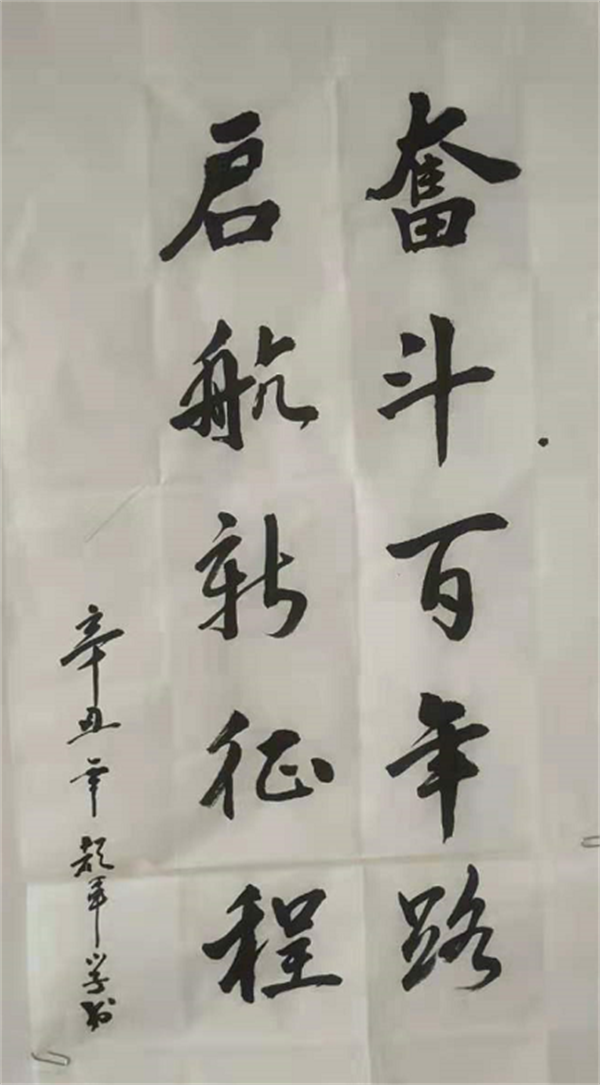 奋斗百年路
启航新征程
辛丑年